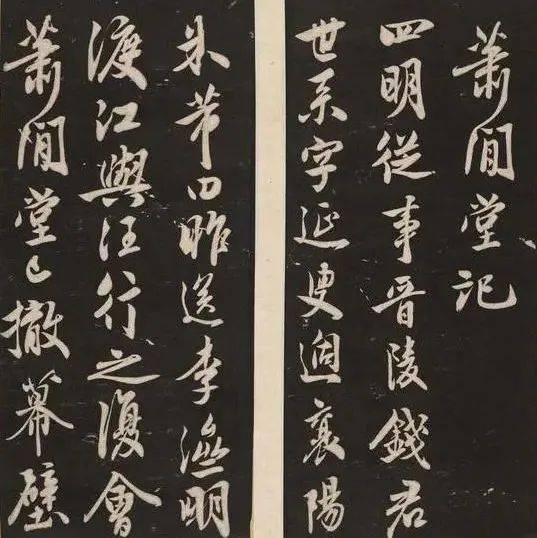 蕭閒堂記
四明從事晉陵錢君
世系字延叟過襄陽
米芾曰昨送李明
渡江與汪行之復會
蕭閒堂已撤幕壁